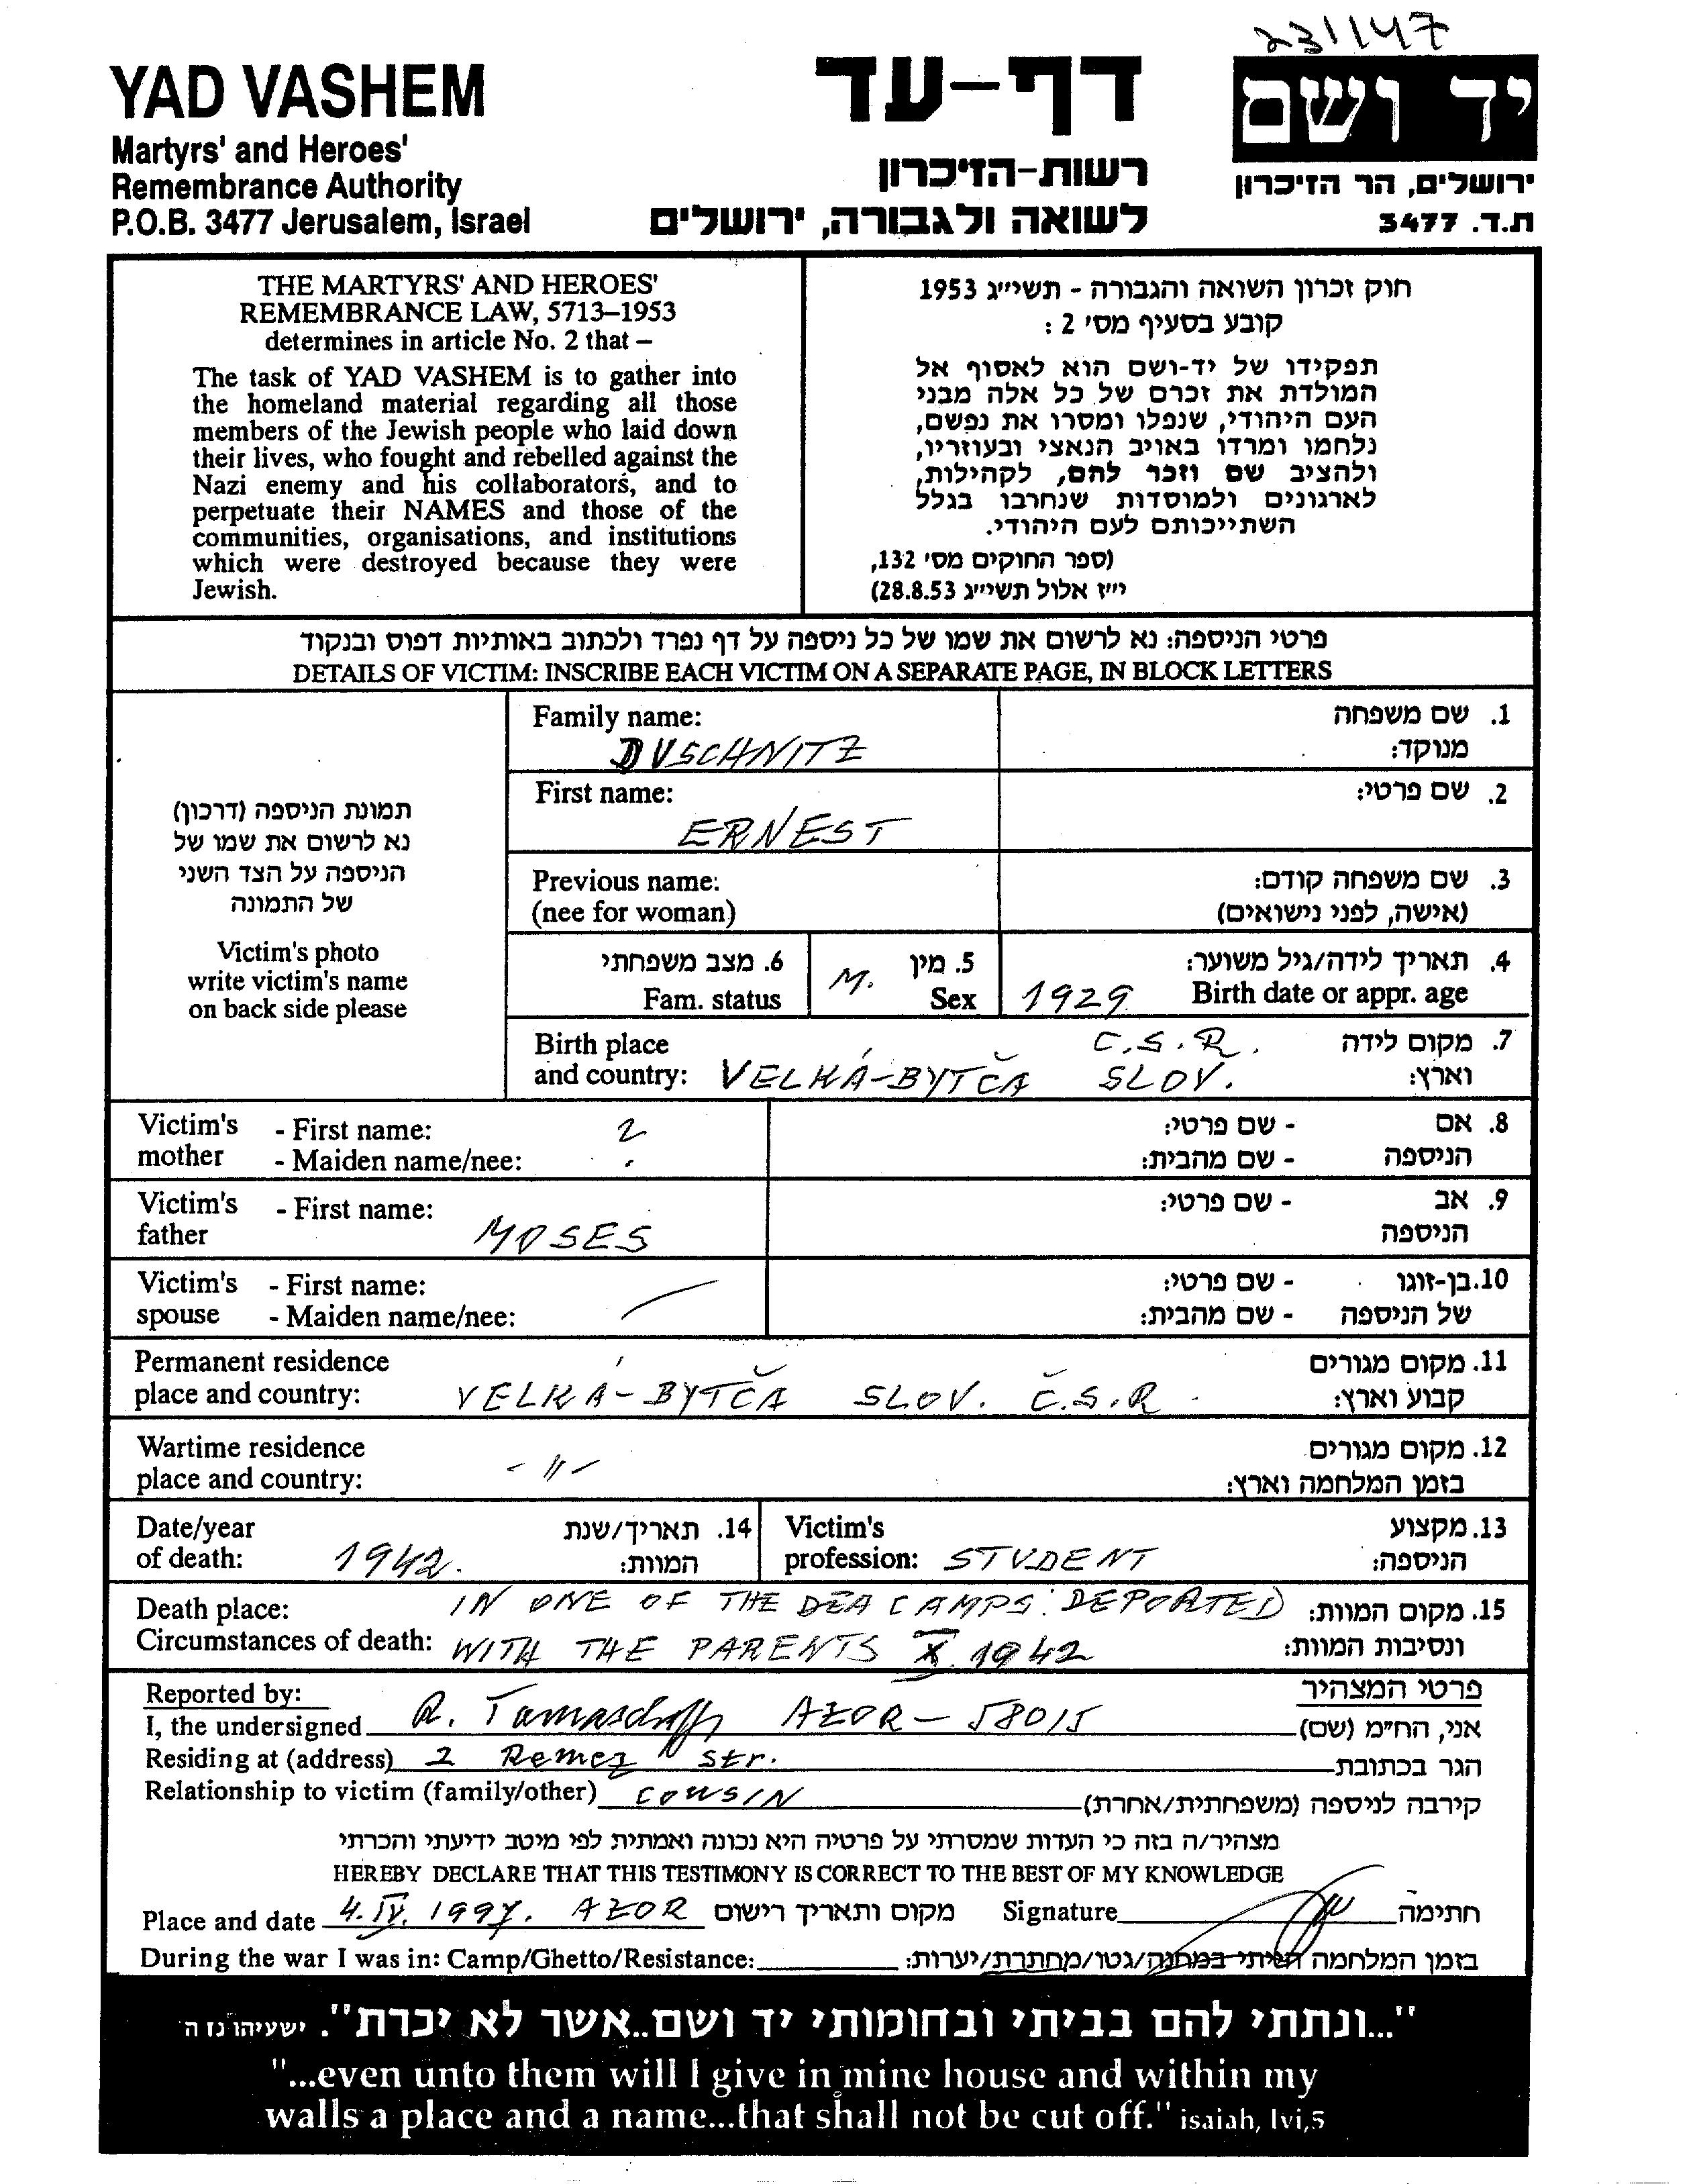 231147
YAD VASHEM
Martyrs' and Heroes'
Remembrance Authority
P.O.B. 3477 Jerusalem, Israel
דף-עד
רשות-הזיכרון
לשואה ולגבורה, ירושלים
יד ושם
ירושלים, הר הזיכרון
ת.ד. 3477
THE MARTYRS' AND HEROES'
REMEMBRANCE LAW, 5713–1953
determines in article No. 2 that –
The task of YAD VASHEM is to gather into
the homeland material regarding all those
members of the Jewish people who laid down
their lives, who fought and rebelled against the
Nazi enemy and his collaborators, and to
perpetuate their NAMES and those of the
communities, organisations, and institutions
which were destroyed because they were
Jewish.
חוק זכרון השואה והגבורה - תשי״ג 1953
קובע בסעיף מס׳ 2 :
תפקידו של יד-ושם הוא לאסוף אל
המולדת את זכרם של כל אלה מבני
העם היהודי, שנפלו ומסרו את נפשם,
נלחמו ומרדו באויב הנאצי ובעוזריו,
ולהציב שם וזכר להם, לקהילות,
לארגונים ולמוסדות שנחרבו בגלל
השתייכותם לעם היהודי.
(ספר החוקים מס׳ 132,
י״ז אלול תשי״ג 28.8.53)
פרטי הניספה: נא לרשום את שמו של כל ניספה על דף נפרד ולכתוב באותיות דפוס ובנקוד
DETAILS OF VICTIM: INSCRIBE EACH VICTIM ON A SEPARATE PAGE, IN BLOCK LETTERS
תמונת הניספה (דרכון)
נא לרשום את שמו של
הניספה על הצד השני
של התמונה
Victim's photo
write victim's name
on back side please
Family name: 1. שם משפחה
DUSCHNITZ מנוקד:
First name: 2. שם פרטי:
ERNEST
Previous name: 3. שם משפחה קודם:
(nee for woman) (אישה, לפני נישואים)
6. מצב משפחתי 5. מין 4. תאריך לידה/גיל משוער:
Fam. status M. Sex 1929 Birth date or appr. age
Birth place C.S.R. 7. מקום לידה
and country: VELKÁ-BYTČA SLOV. וארץ:
Victim's - First name: ? - שם פרטי: 8. אם
mother - Maiden name/nee: - שם מהבית: הניספה
Victim's - First name: - שם פרטי: 9. אב
father MOSES הניספה
Victim's - First name: - שם פרטי: 10. בן-זוגו
spouse - Maiden name/nee: - שם מהבית: של הניספה
Permanent residence 11. מקום מגורים
place and country: VELKÁ-BYTČA SLOV. Č.S.R. קבוע וארץ:
Wartime residence 12. מקום מגורים
place and country: -〃- בזמן המלחמה וארץ:
Date/year 14. תאריך/שנת Victim's 13. מקצוע
of death: 1942. המוות: profession: STUDENT הניספה:
Death place: IN ONE OF THE DEA CAMPS. DEPORTED 15. מקום המוות:
Circumstances of death: WITH THE PARENTS X. 1942 ונסיבות המוות:
Reported by: פרטי המצהיר
I, the undersigned R. Tamaschoff AZOR - 58015 אני, הח״מ (שם)
Residing at (address) 2 Remez Str. הגר בכתובת
Relationship to victim (family/other) COUSIN קירבה לניספה (משפחתית/אחרת)
מצהיר/ה בזה כי העדות שמסרתי על פרטיה היא נכונה ואמתית לפי מיטב ידיעתי והכרתי
HEREBY DECLARE THAT THIS TESTIMONY IS CORRECT TO THE BEST OF MY KNOWLEDGE
Place and date 4. IV. 1997. AZOR מקום ותאריך רישום Signature חתימה
During the war I was in: Camp/Ghetto/Resistance: בזמן המלחמה הייתי במחנה/גטו/מחתרת/יערות:
"...ונתתי להם בביתי ובחומותי יד ושם..אשר לא יכרת". ישעיהו נז ה
"...even unto them will I give in mine house and within my
walls a place and a name...that shall not be cut off." isaiah, lvi,5